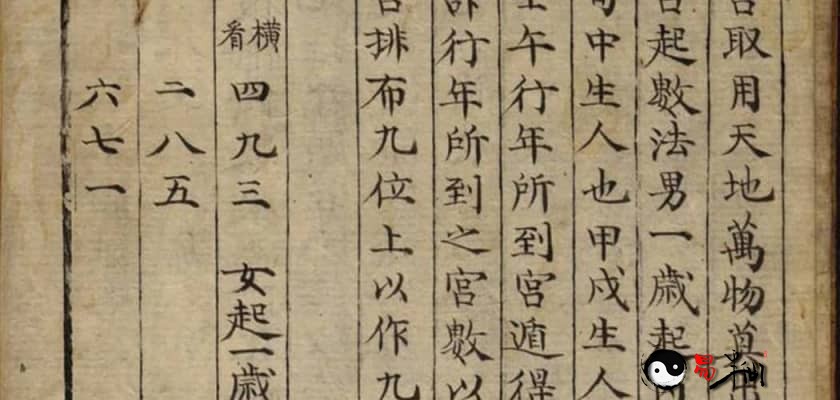 取用天地萬物莫
起數法男一歲起
旬中生人也甲戌生人
午行年所到宮遁得
行年所到之宮數以
排布九位上以作九
橫看 四九三 女起一歲
二八五
六七一